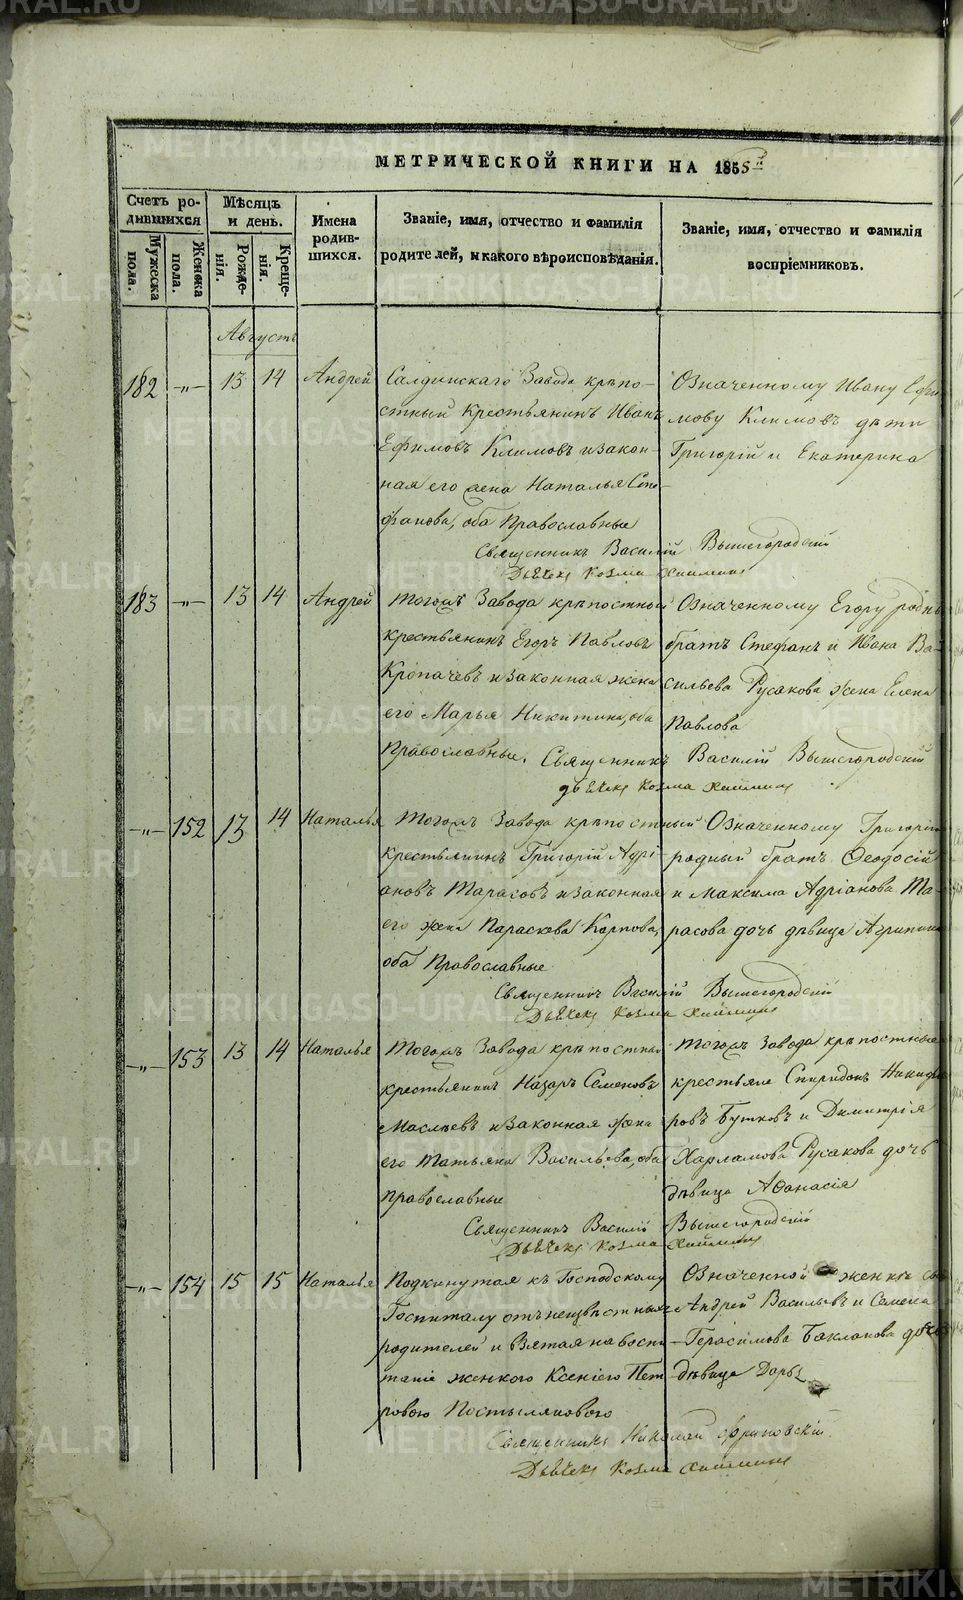 МЕТРИЧЕСКОЙ КНИГИ НА 1855й
Счетъ ро-
дившихся
Мѣсяцъ
и день.
Имена
родив-
шихся.
Званіе, имя, отчество и фамилія
родителей, и какого вѣроисповѣданія.
Званіе, имя, отчество и фамилія
воспріемниковъ.
Мужеска
пола.
Женска
пола.
Рожде-
нія.
Креще-
нія.
Августъ
182 -„- 13 14 Андрей
Салдинскаго Завода крѣпо-
стный крестьянинъ Иванъ
Ефимовъ Климовъ и закон-
ная его жена Наталья Сте-
фанова, оба Православные
Означенному Ивану Ефи
мову Климовъ дѣти
Григорій и Екатерина
Священникъ Василій Вышегородскій
Дьячекъ Козма
183 -„- 13 14 Андрей
Тогожъ Завода крѣпостной
крестьянинъ Егоръ Павловъ
Кропачевъ и законная жена
его Марья Никитина, оба
Православные.
Означенному Егору родн
братъ Стефанъ и Ивана Ва-
сильева Русакова жена Елена
Павлова
Священникъ Василій Вышегородскій
дьячекъ Козма
-„- 152 13 14 Наталья
Тогожъ Завода крѣпостный
крестьянинъ Григорій Адрі-
ановъ Тарасовъ и законная
его жена Параскева Карпова,
оба Православные
Означенному Григорію
родный братъ Ѳеодосій
и Максима Адріанова Та-
расова дочь дѣвица Агрипина
Священникъ Василій Вышегородскій
Дьячекъ Козма
-„- 153 13 14 Наталья
Тогожъ Завода крѣпостный
крестьянинъ Назаръ Семеновъ
Маслѣевъ и законная жена
его Татьяна Васильева, оба
православные
Тогожъ Завода крѣпостные
крестьяне Спиридонъ Никифо
ровъ Бутковъ и Димитрія
Харламова Русакова дочь
дѣвица Аѳанасія
Священникъ Василій Вышегородскій
Дьячекъ Козма
-„- 154 15 15 Наталья
Подкинутая къ Господскому
Госпиталу отъ неизвѣстныхъ
родителей и взятая на воспи-
таніе женкого Ксеніею Пет
ровою Постыляковою
Означенной женкѣ
Андрей Васильевъ и Семена
Герасимова Бакланова дочь
дѣвица Дарья
Священникъ Николай
Дьячекъ Козма
METRIKI.GASO-URAL.RU